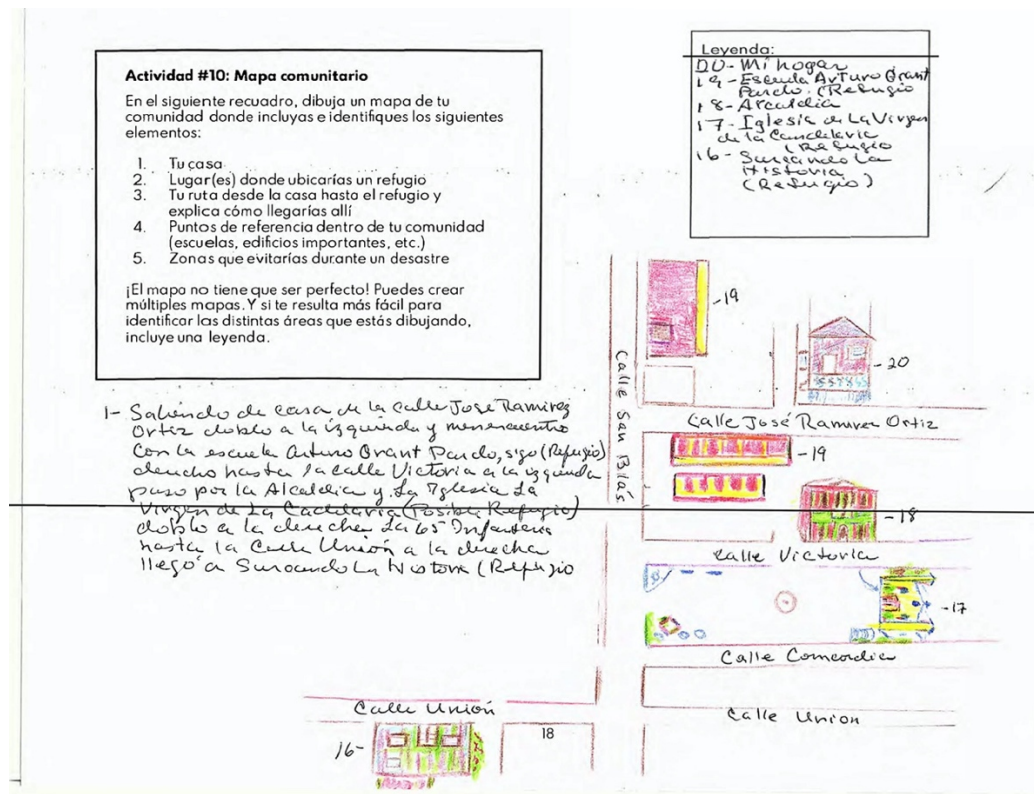 Actividad #10: Mapa comunitario
En el siguiente recuadro, dibuja un mapa de tu
comunidad donde incluyas e identifiques los siguientes
elementos:
1. Tu casa
2. Lugar(es) donde ubicarías un refugio
3. Tu ruta desde la casa hasta el refugio y
explica cómo llegarías allí
4. Puntos de referencia dentro de tu comunidad
(escuelas, edificios importantes, etc.)
5. Zonas que evitarías durante un desastre
¡El mapa no tiene que ser perfecto! Puedes crear
múltiples mapas. Y si te resulta más fácil para
identificar las distintas áreas que estás dibujando,
incluye una leyenda.
Leyenda:
20- Mi hogar
19- Escuela Arturo Grant
Pardo. (Refugio
18- Alcaldia
17- Iglesia de La Virgen
de la Candelaria
(Refugio
16- Surcando La
Historia
(Refugio)
1- Saliendo de casa de la calle José Ramirez
Ortiz doblo a la izquierda y me encuentro
con la escuela Arturo Grant Pardo, sigo (Refugio)
derecho hasta la calle Victoria a la izquierda
paso por la Alcaldia y La Iglesia La
Virgen de La Candelaria (Posible Refugio)
doblo a la derecha La 65 Infanteria
hasta la Calle Unión a la derecha
llego a Surcando La Historia (Refugio
-19
-20
Calle San Blás
Calle José Ramirez Ortiz
-19
-18
Calle Victoria
-17
Calle Concordia
Calle Unión
Calle Union
16-
18